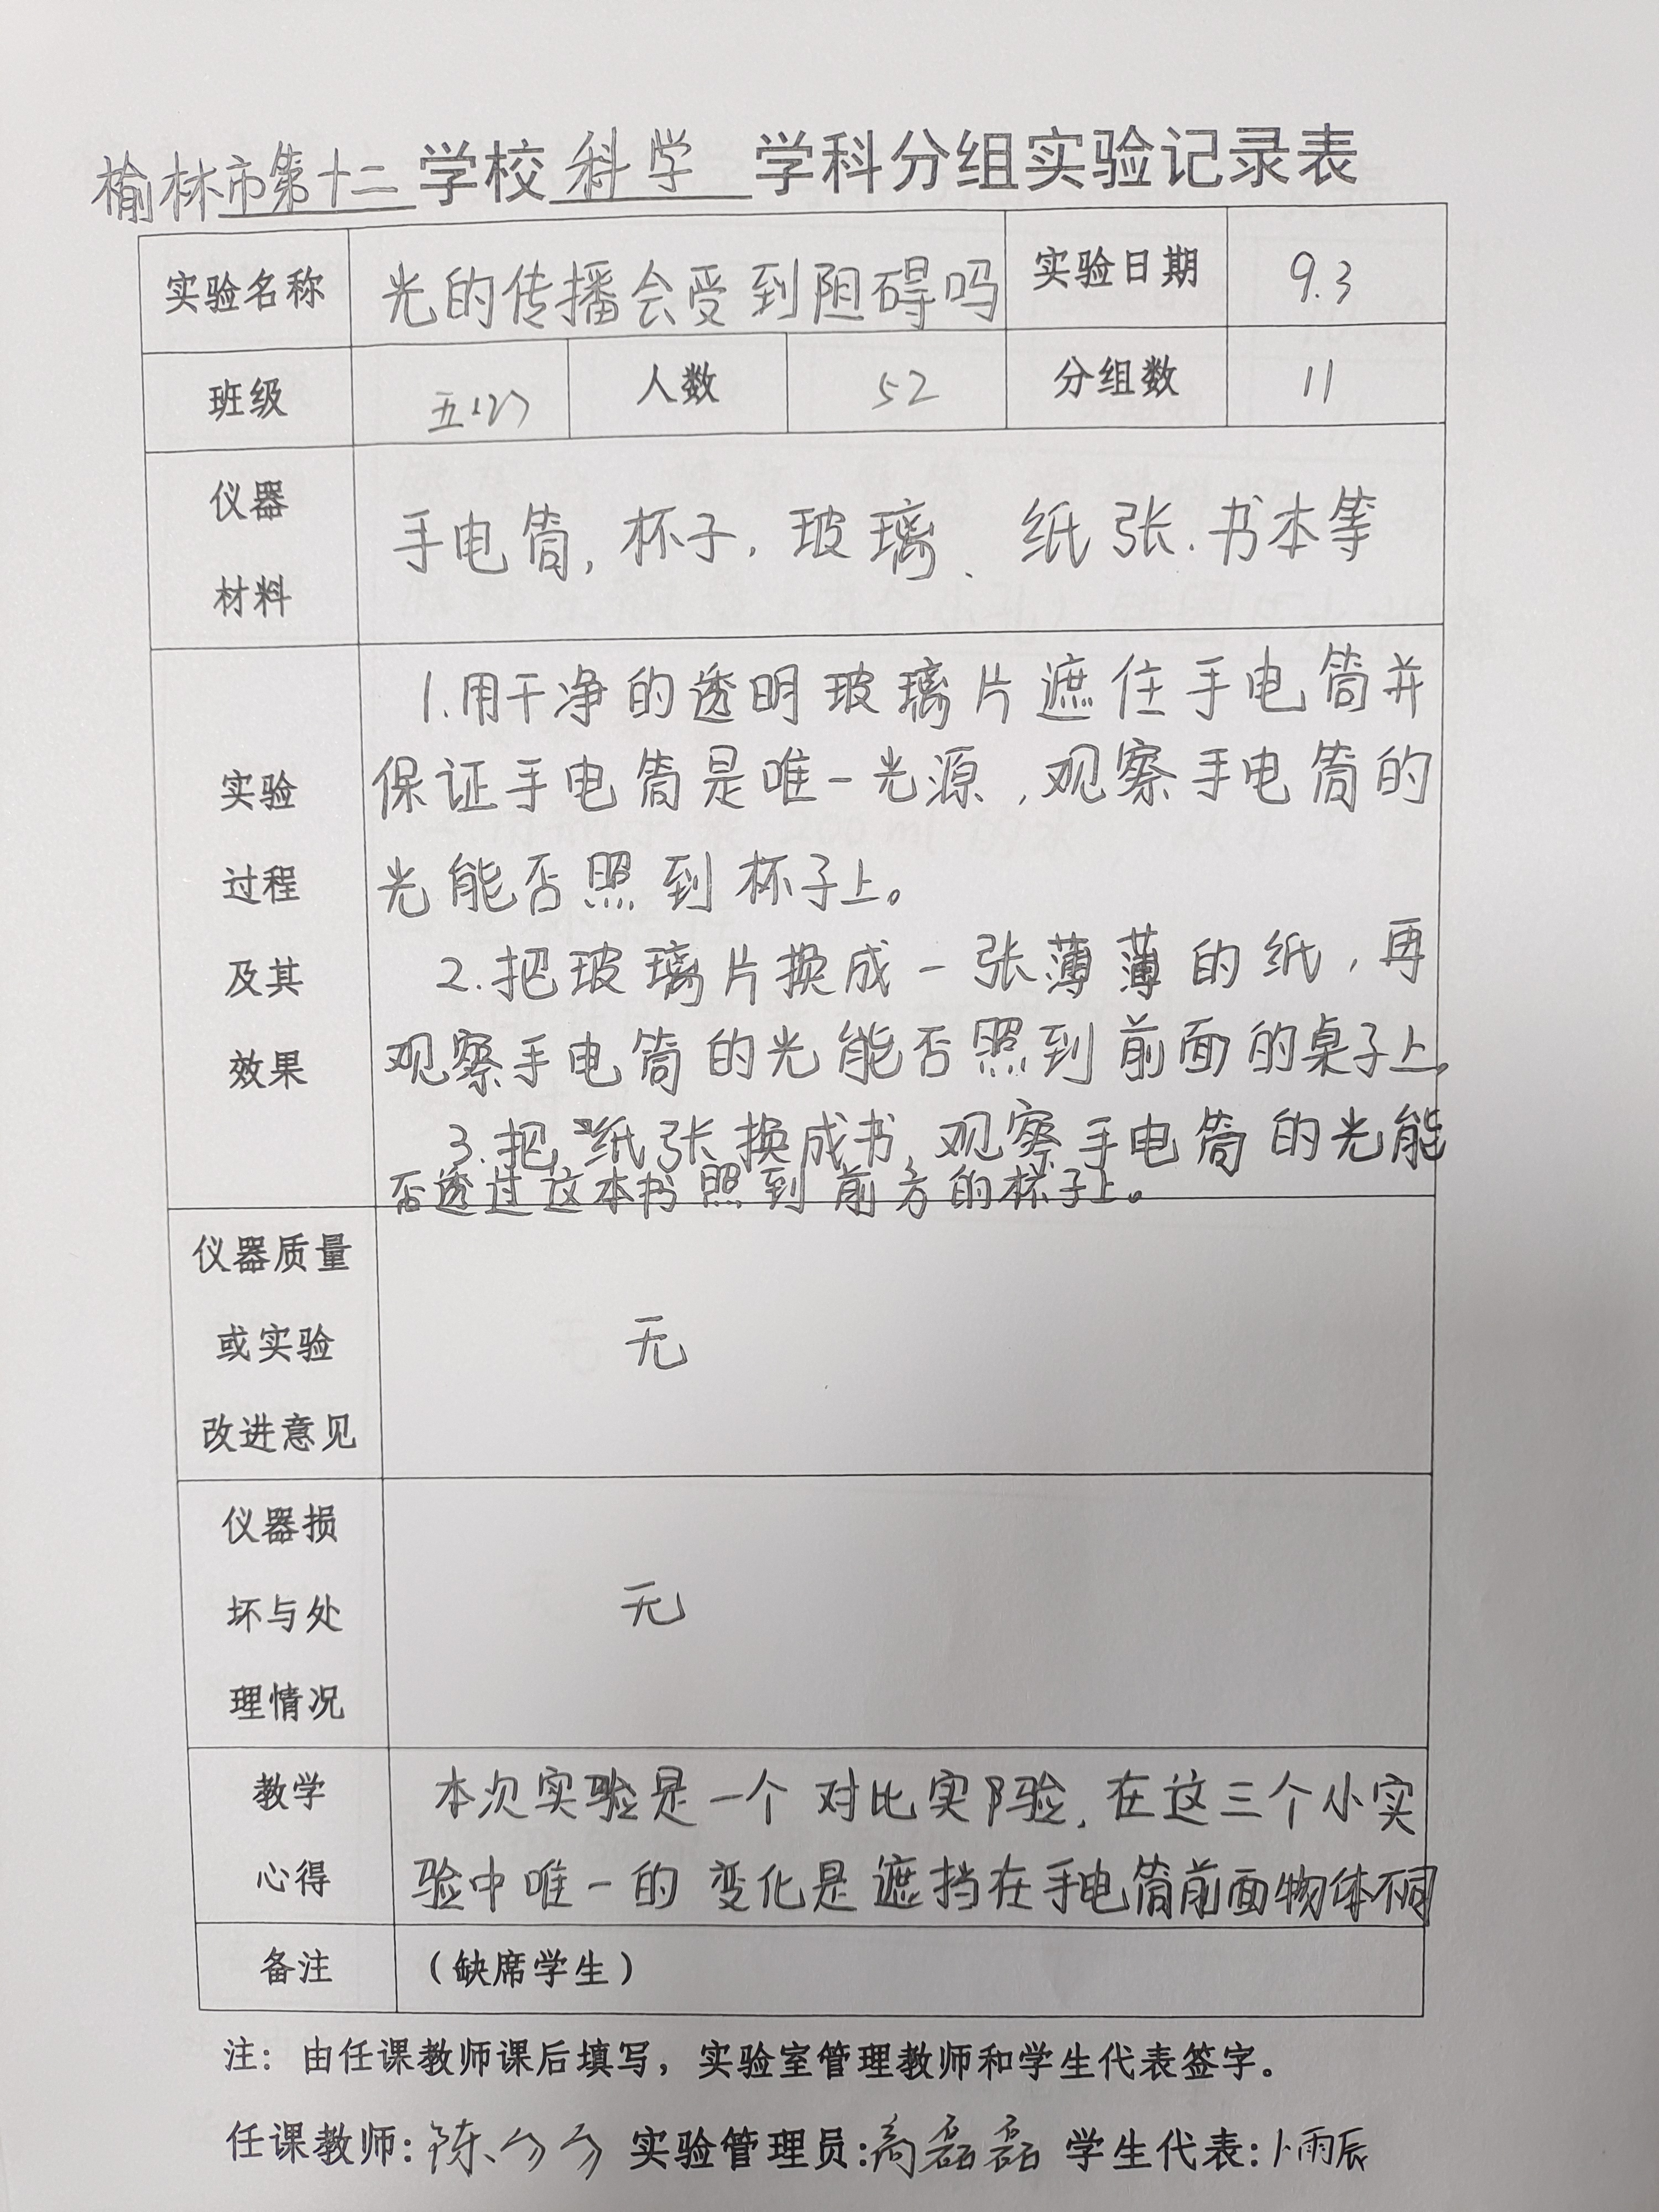 榆林市第十二学校科学学科分组实验记录表
实验名称 光的传播会受到阻碍吗 实验日期 9.3
班级 五(2) 人数 52 分组数 11
仪器
材料
手电筒,杯子,玻璃、纸张、书本等
实验
过程
及其
效果
1.用干净的透明玻璃片遮住手电筒并
保证手电筒是唯一光源,观察手电筒的
光能否照到杯子上。
2.把玻璃片换成一张薄薄的纸,再
观察手电筒的光能否照到前面的桌子上。
3.把纸张换成书,观察手电筒的光能
否透过这本书照到前方的杯子上。
仪器质量
或实验
改进意见
无
仪器损
坏与处
理情况
无
教学
心得
本次实验是一个对比实验,在这三个小实
验中唯一的变化是遮挡在手电筒前面物体不同
备注 (缺席学生)
注:由任课教师课后填写,实验室管理教师和学生代表签字。
任课教师:陈 实验管理员:高磊磊 学生代表:卜雨辰